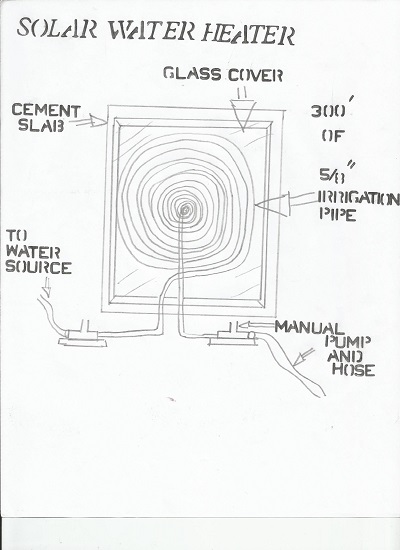 SOLAR WATER HEATER
GLASS COVER
CEMENT
SLAB
300'
OF
5/8"
IRRIGATION
PIPE
TO
WATER
SOURCE
MANUAL
PUMP
AND
HOSE